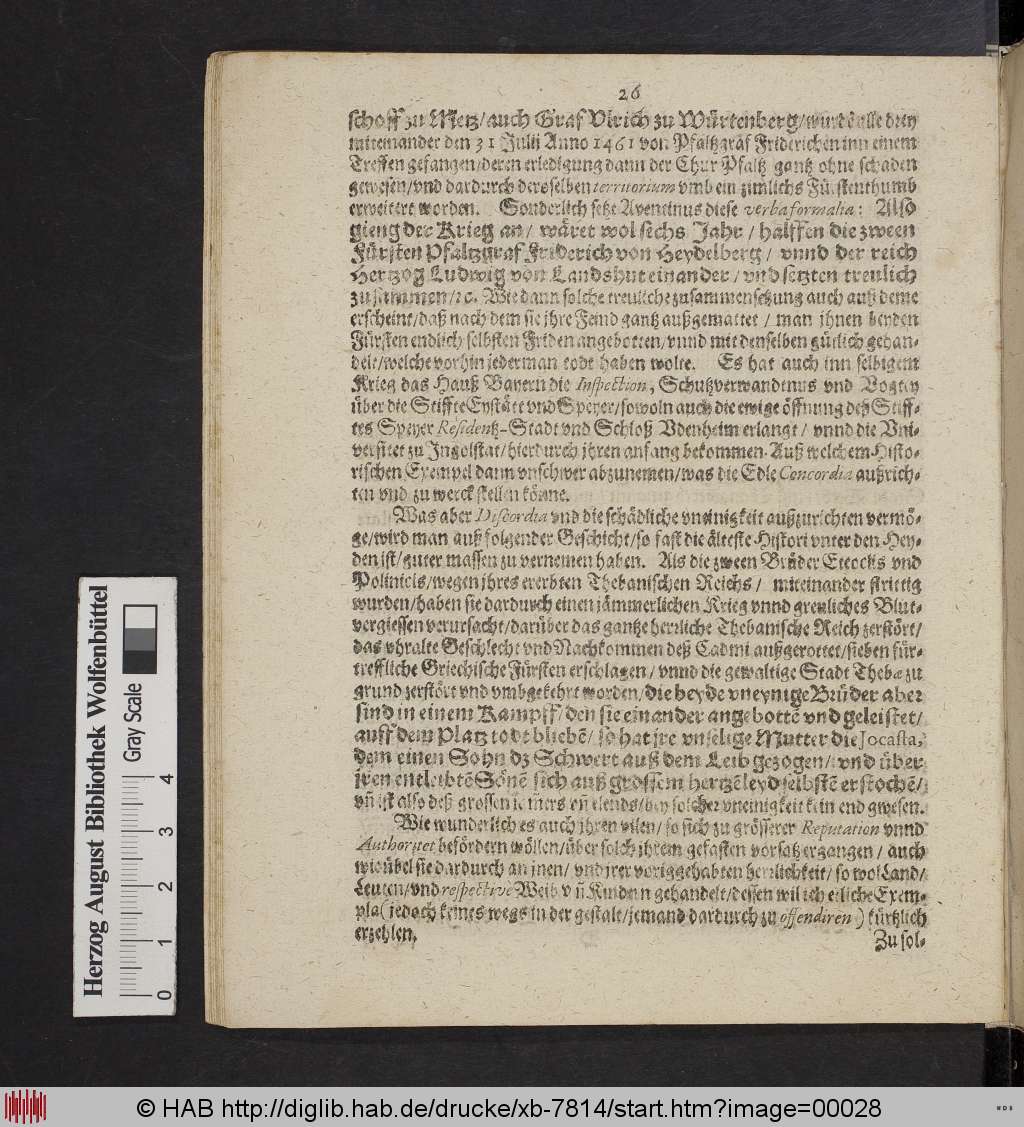 26
schoff zu Metz/auch Graf Vlrich zu Würtenberg/wurdē alle drey
miteinander den 31 Julii Anno 1461 von Pfaltzgraf Friderichen inn einem
Treffen gefangen/deren erledigung dann der Chur Pfaltz gantz ohne schaden
gewesen/vnd dardurch derosselben territorium vmb ein zimlichs Fürstenthumb
erweitert worden. Sonderlich setzt Aventinus diese verba formalia: Also
gieng der Krieg an/ wäret wol sechs Jahr/ halffen die zween
Fürsten Pfaltzgraf Friderich von Heydelberg/ vnnd der reich
Hertzog Ludwig von Landshut einander/ vnd setzten treulich
zusammen/ ꝛc. Wie dann solche treuliche zusammensetzung auch auß deme
erscheint/daß nach dem sie jhre Feind gantz außgemattet/ man jhnen beyden
Fürsten endlich selbsten Friden angebotten/vnnd mit denselben gütlich gehan-
delt/welche vorhin jederman todt haben wolte. Es hat auch inn selbigem
Krieg das Hauß Bayern die Inspection, Schutzverwandtnus vnd Vogtay
über die Stiffte Eystätt vnd Speyer/sowoln auch die ewige öffnung deß Stiff-
tes Speyer Residentz-Stadt vnd Schloß Vdenheim erlangt/ vnnd die Vni-
versitet zu Ingolstat/hierdurch jhren anfang bekommen. Auß welchem Histo-
rischen Exempel dann vnschwer abzunemen/was die Edle Concordia außrich-
ten vnd zu werck stellen könne.
Was aber Discordia vnd die schädliche vneinigkeit außzurichten vermö-
ge/wird man auß folgender Geschicht/so fast die älteste Histori vnter den Hey-
den ist/guter massen zu vernemen haben. Als die zween Brüder Eteoclis vnd
Polinicis/wegen jhres ererbten Thebanischen Reichs/ miteinander strittig
wurden/haben sie dardurch einen jämmerlichen Krieg vnnd greuliches Blut-
vergiessen verursacht/darüber das gantze herrliche Thebanische Reich zerstört/
das vhralte Geschlecht vnd Nachkommen deß Cadmi außgerottet/sieben für-
treffliche Griechische Fürsten erschlagen/ vnnd die gewaltige Stadt Thebæ zu
grund zerstört vnd vmbgekehrt worden/die beyde vneynige Brüder aber
sind in einem Kampff/den sie einander angebottē vnd geleistet/
auff dem Platz todt bliebē/ so hat jre vnselige Mutter die Jocasta,
dem einen Sohn dz Schwert auß dem Leib gezogen/ vnd über
jren entleibtē Sönē sich auß grossem hertzēleyd selbstē erstochē/
vñ ist also deß grossen jamers vñ elends/bey solcher vneinigkeit kein end gwesen.
Wie wunderlich es auch jhren vilen/ so sich zu grösserer Reputation vnnd
Authoritet befördern wöllen/über solch jhrem gefasten vorsatz ergangen/ auch
wie übel sie dardurch an jnen/ vnd jrer vorig gehabten herrlichkeit/ so wol Land/
Leuten/vnd respectivè Weib vñ Kindern gehandelt/dessen wil ich etliche Exem-
pla (jedoch keines wegs in der gestalt/jemand dardurch zu offendiren) kürtzlich
erzehlen.
Zu sol-
Herzog August Bibliothek Wolfenbüttel
Gray Scale
0 1 2 3 4
© HAB http://diglib.hab.de/drucke/xb-7814/start.htm?image=00028